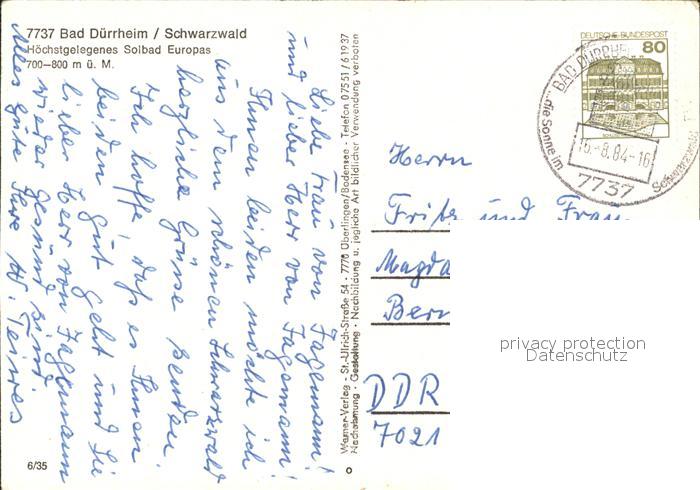 7737 Bad Dürrheim / Schwarzwald
Höchstgelegenes Solbad Europas
700–800 m ü. M.
Liebe Frau von Fagemann!
und lieber Herr von Fagemann!
Ihnen beiden möchte ich
aus dem schönen Schwarzwald
herzliche Grüße senden.
Ich hoffe, daß es Ihnen
beiden gut geht und Sie
lieber Herr von Fagemann
wieder gesund sind.
Alles Gute Ihre W.
6/35
Werner-Verlag - St.-Ulrich-Straße 54 - 7770 Überlingen/Bodensee - Telefon 07551/61937
Nachahmung - Gestaltung - Nachbildung u. jegliche Art bildlicher Verwendung verboten
DEUTSCHE BUNDESPOST
80
BAD DÜRRHEIM
15.-8.84-16
7737
...die Sonne im Schwarzwald
Herrn
Fritz und Frau
Magda
Ber
DDR
7021
privacy protection
Datenschutz